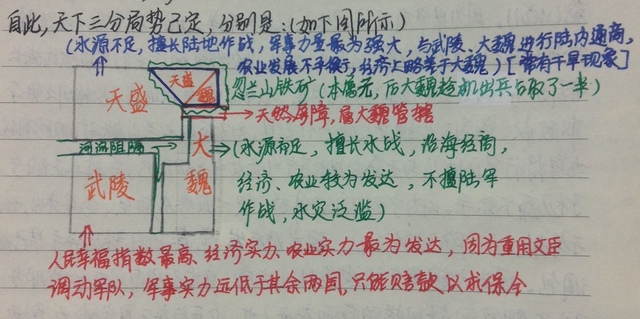 自此,天下三分局势已定,分别是:(如下图所示)
(水源不足,擅长陆地作战,军事力量最为强大,与武陵、大魏进行陆内通商,
农业发展不平衡,经济上略等于大魏)[常有干旱现象]
天盛
天盛
魏
忽兰山铁矿(本属元,后大魏趁机出兵占取了一半)
天然屏障,属大魏管辖
河流阻隔
大魏
(水源充足,擅长水战,沿海经商,
经济、农业较为发达,不擅陆军
作战,水灾泛滥)
武陵
人民幸福指数最高、经济实力、农业实力最为发达,因为重用文臣
调动军队,军事实力远低于其余两国,只能赔款以求保全